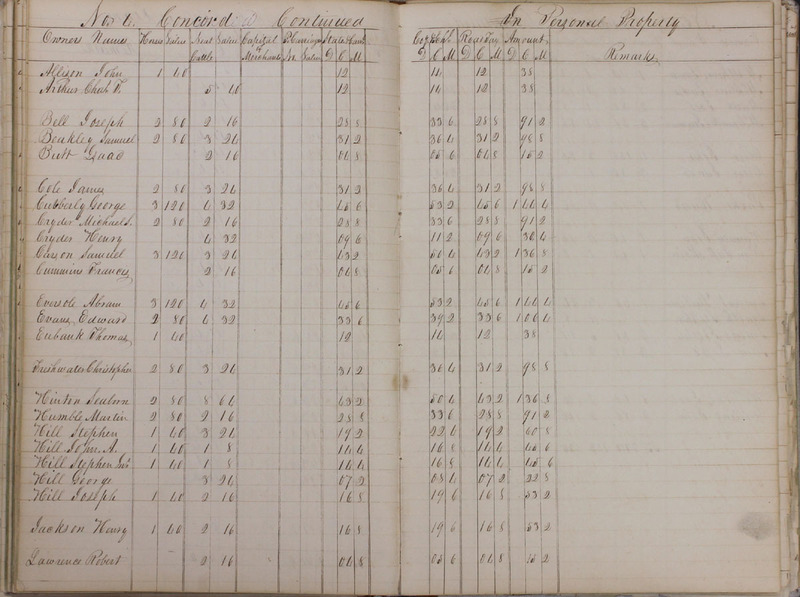 No 6. Concord Continued In Personal Property
Owners Names Horses Value Neat Cattle Value Capital Merchants P. Carriages No Value State & Canal D C M Co & School D C M Road D C M Amount D C M Remarks
Allison John 1 40 12 14 12 38
Arthur 5 40 12 14 12 38
Bell Joseph 2 80 2 16 28 8 33 6 28 8 91 2
Beakley Samuel 2 80 3 24 31 2 36 4 31 2 98 8
Butt Isaac 2 16 04 8 05 6 04 8 15 2
Cole James 2 80 3 24 31 2 36 4 31 2 98 8
Cubberly George 3 120 4 32 45 6 53 2 45 6 1 44 4
Cryder Michael 2 80 2 16 28 8 33 6 28 8 91 2
Cryder Henry 4 32 09 6 11 2 09 6 30 4
Carson Samuel 3 120 3 24 43 2 50 4 43 2 1 36 8
Cummins Frances 2 16 04 8 05 6 04 8 15 2
Eversole Abram 3 120 4 32 45 6 53 2 45 6 1 44 4
Evans Edward 2 80 4 32 33 6 39 2 33 6 1 06 4
Eubank Thomas 1 40 12 14 12 38
Freshwater Christopher 2 80 3 24 31 2 36 4 31 2 98 8
Hinton Seaborn 2 80 8 64 43 2 50 4 43 2 1 36 8
Humble Martin 2 80 2 16 28 8 33 6 28 8 91 2
Hill Stephen 1 40 3 24 19 2 22 4 19 2 60 8
Hill John A. 1 40 1 8 14 4 16 8 14 4 45 6
Hill Stephen Jnr 1 40 1 8 14 4 16 8 14 4 45 6
Hill George 3 24 07 2 08 4 07 2 22 8
Hill Joseph 1 40 2 16 16 8 19 6 16 8 53 2
Jackson Henry 1 40 2 16 16 8 19 6 16 8 53 2
Lawrence Robert 2 16 04 8 05 6 04 8 15 2